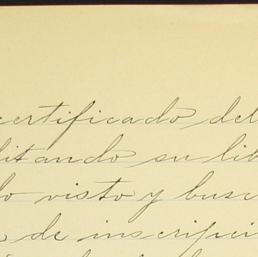 certificado del
litando su lib
lo visto y busc
de inscripci